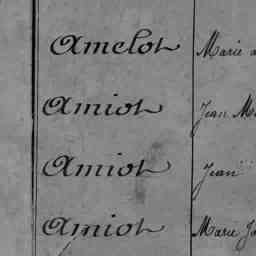 Amelot Marie
Amiot Jean
Amiot Jean
Amiot Marie